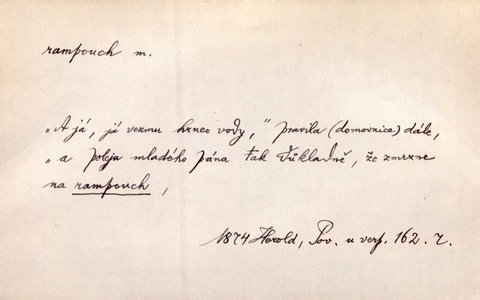 rampouch m.
„A já, já vezmu hrnec vody,“ pravila (domovnice) dále,
„a poleju mladého pána tak důkladně, že zmrzne
na rampouch,
1874 Herold, Pov. u verp. 162. 7.